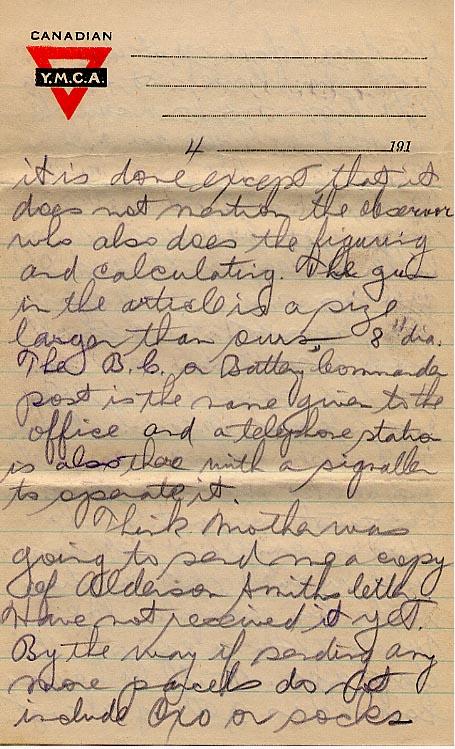 CANADIAN
Y.M.C.A.
4 191
it is done except that it
does not mention the observer
who also does the figuring
and calculating. The gun
in the article is a size
larger than ours 8" dia.
The B.C. or Battery Commander
post is the name given to the
office and a telephone station
is also there with a signaller
to operate it.
Think Mother was
going to send me a copy
of Alderson Smiths letter.
Have not received it yet.
By the way if sending any
more parcels do not
include Oxo or socks